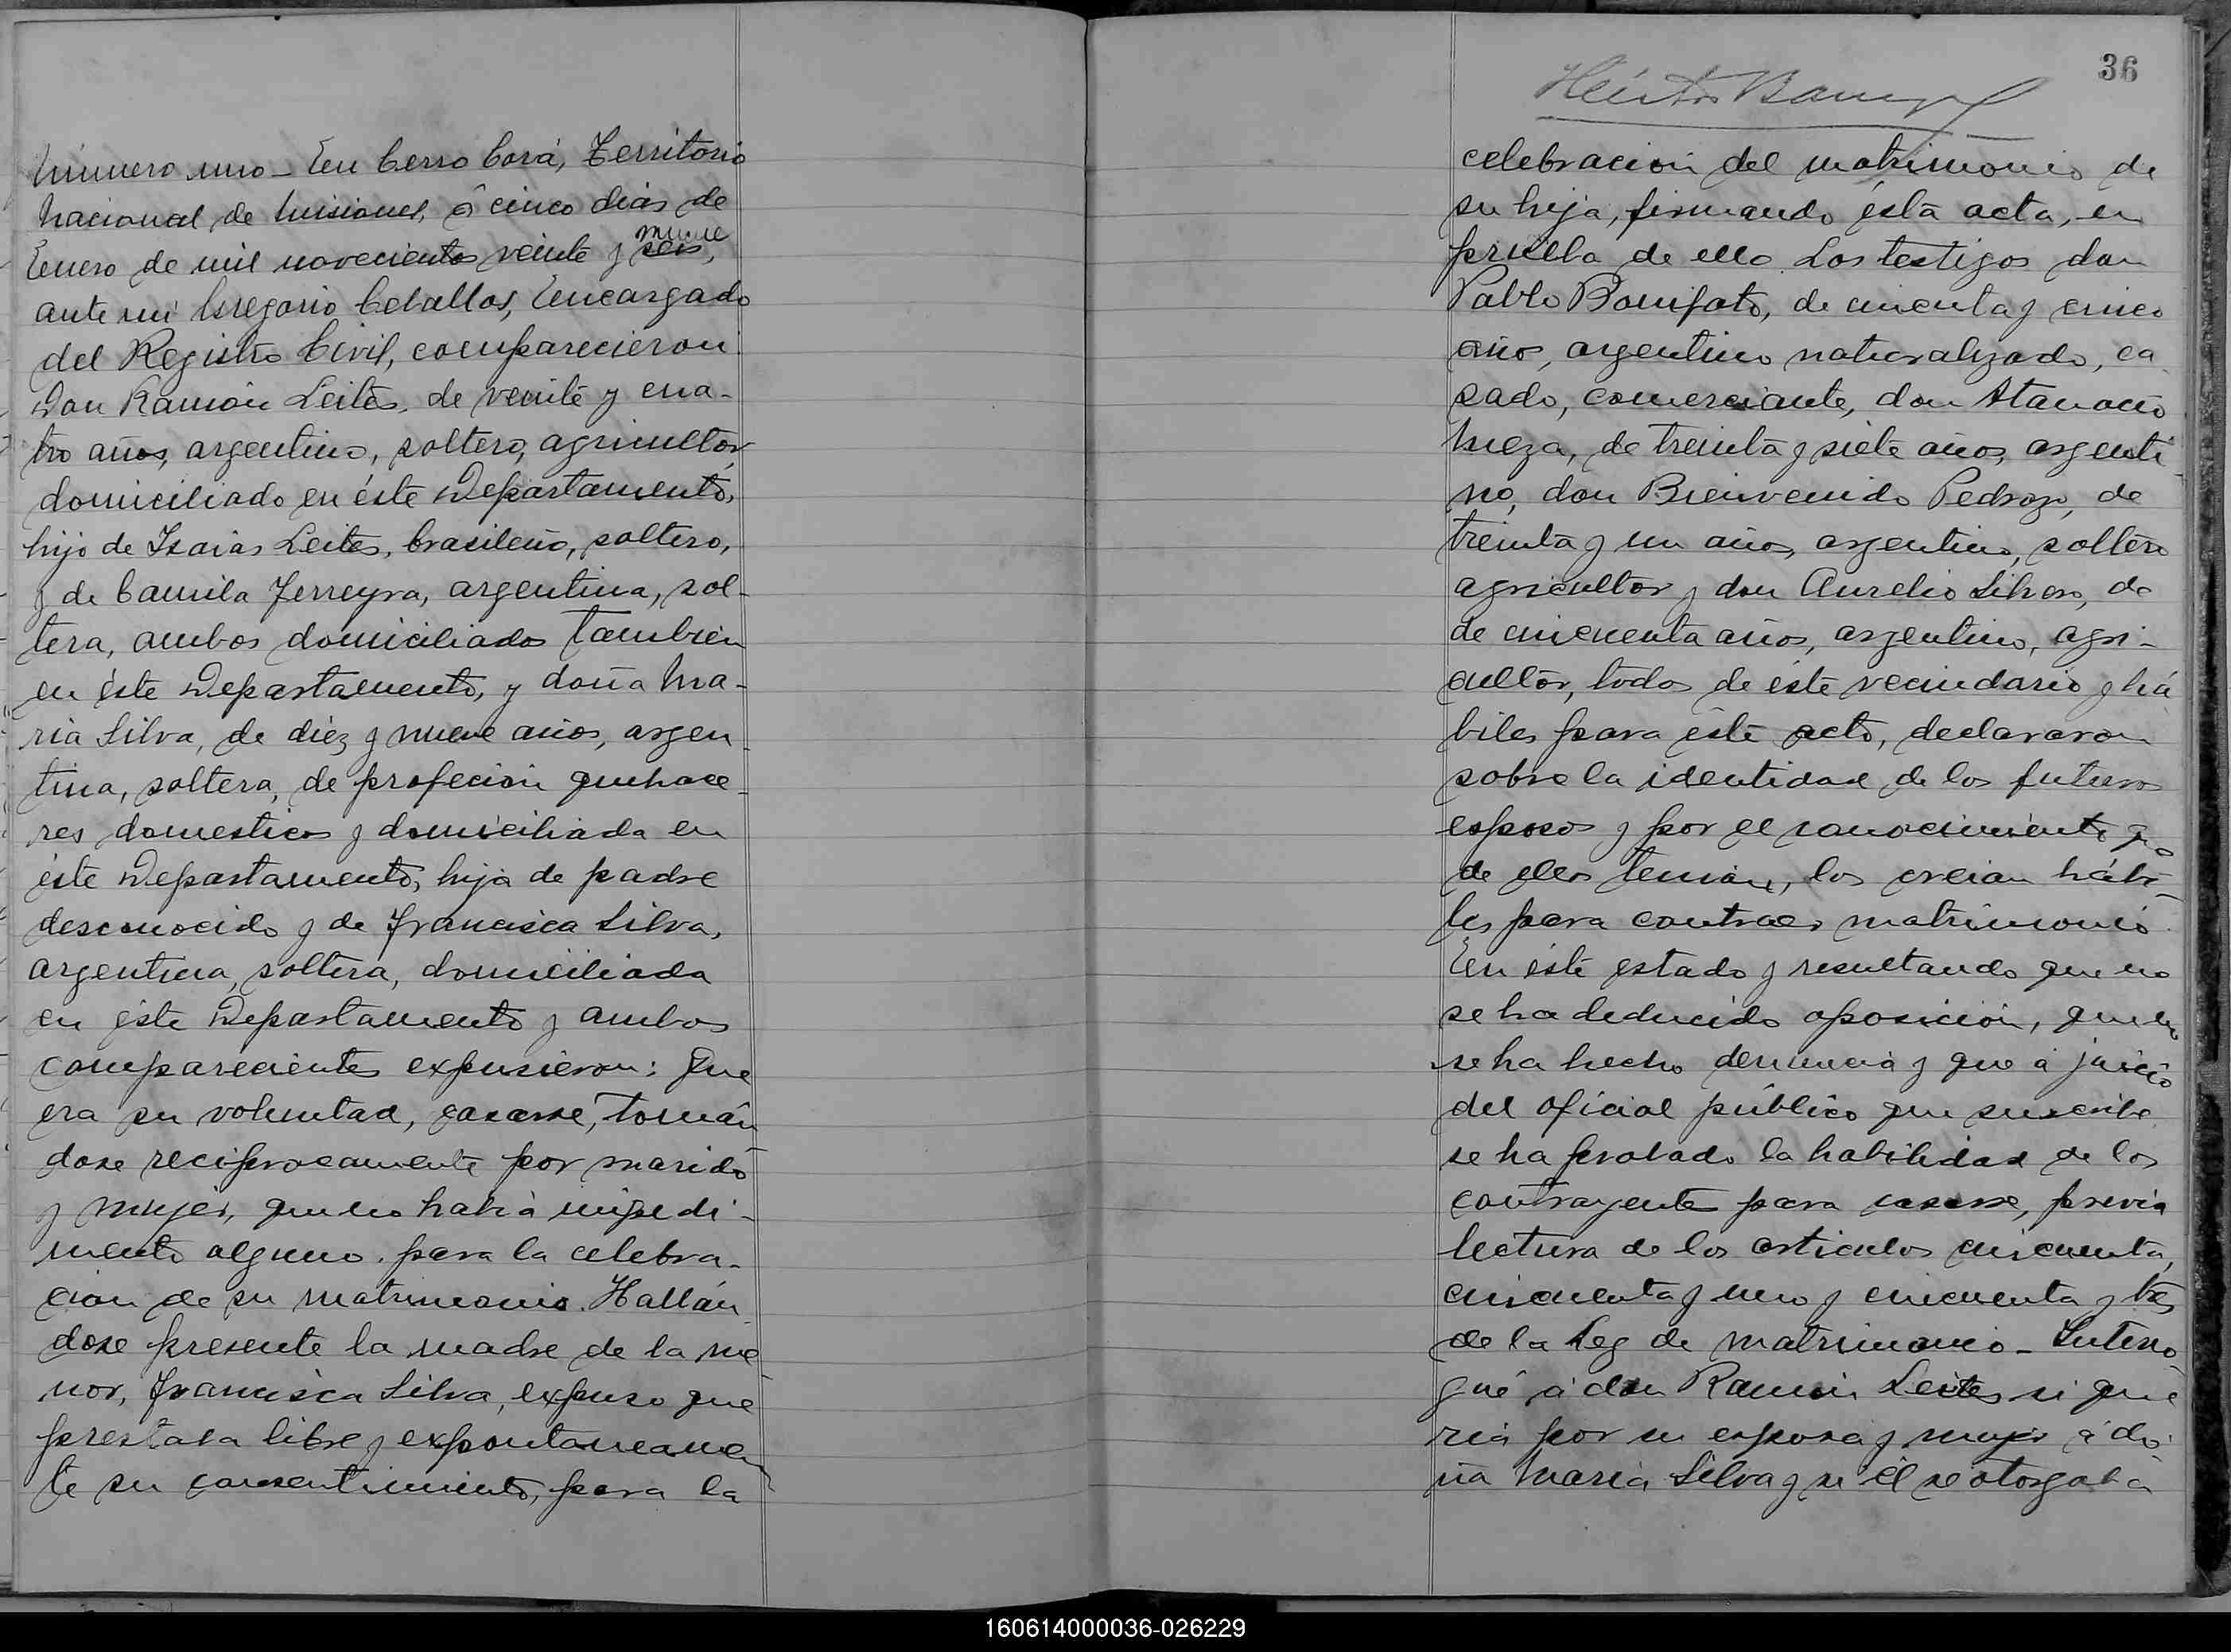 Número uno_ En Cerro Corá, Territorio
Nacional de Misiones, á cinco dias de
Enero de mil novecientos veinte y seis, nueve
ante mi Gregorio Ceballos, Encargado
del Registro Civil, comparecieron
Don Ramón Leites, de veinte y cua-
tro años, argentino, soltero, agricultor,
domiciliado en éste Departamento,
hijo de Isaias Leites, brasileño, soltero,
y de Camila Ferreyra, argentina, sol-
tera, ambos domiciliados tambien
en éste Departamento, y doña Ma-
ria Silva, de diéz y nueve años, argen-
tina, soltera, de profecion quehace-
res domesticos y domiciliada en
éste Departamento, hija de padre
desconocido y de Francisca Silva,
argentina, soltera, domiciliada
en éste Departamento y ambos
comparecientes expusieron: Que
era su voluntad, casarse, tomán
dose reciprocamente por marido
y mujer, que no habia impedi-
mento alguno para la celebra-
cion de su matrimonio. Hallán
dose presente la madre de la me
nor, Francisca Silva, expuso que
prestaba libre y expontaneamen
te su consentimiento, para la
36
celebracion del matrimonio de
su hija, firmando ésta acta, en
prueba de ello. Los testigos don
Pablo Bonifato, de cincuenta y cinco
años, argentino naturalizado, ca
sado, comerciante, don Atanacio
Meza, de treinta y siete años, argenti
no, don Bienvenido Pedrozo, de
treinta y un años, argentino, soltero
agricultor y don Aurelio Silvero, de
de cincuenta años, argentino, agri-
cultor, todos de éste vecindario y há
biles para éste acto, declararon
sobre la identidad de los futuros
esposos y por el conocimiento que
de ellos tenian, los creian hábi-
les para contraer matrimonio.
En éste estado y resultando que no
se ha deducido oposición, que no
se ha hecho denuncia y que á juicio
del oficial público que suscribe
se ha probado la habilidad de los
contrayentes para casarse, previa
lectura de los articulos cincuenta,
cincuenta y uno y cincuenta y tres
de la Ley de matrimonio_ Interro
gué á don Ramón Leites si que
ria por su esposa y mujer á do
ña Maria Silva y si él se otorgaba
160614000036-026229